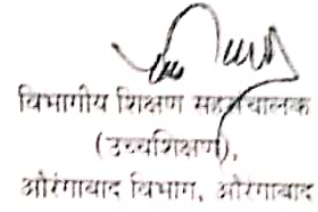 विभागीय शिक्षण सहसंचालक
(उच्चशिक्षण),
औरंगाबाद विभाग, औरंगाबाद